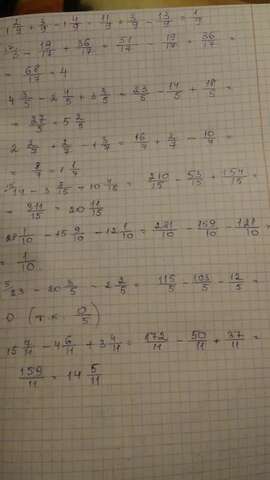 1 2/9 + 3/9 - 1 4/9 = 11/9 + 3/9 - 13/9 = 1/9
3 - 19/17 + 36/17 = 51/17 - 19/17 + 36/17 =
= 68/17 = 4
4 3/5 - 2 4/5 + 3 3/5 = 23/5 - 14/5 + 18/5 =
= 27/5 = 5 2/5
2 2/7 + 2/7 - 1 3/7 = 16/7 + 2/7 - 10/7 =
= 8/7 = 1 1/7
14 - 3 8/15 + 10 4/15 = 210/15 - 53/15 + 154/15 =
= 311/15 = 20 11/15
28 1/10 - 15 9/10 - 12 1/10 = 281/10 - 159/10 - 121/10 =
= 1/10.
23 - 20 3/5 - 2 2/5 = 115/5 - 103/5 - 12/5 =
0 (т.к. 0/5)
15 7/11 - 4 6/11 + 3 4/11 = 172/11 - 50/11 + 37/11 =
159/11 = 14 5/11